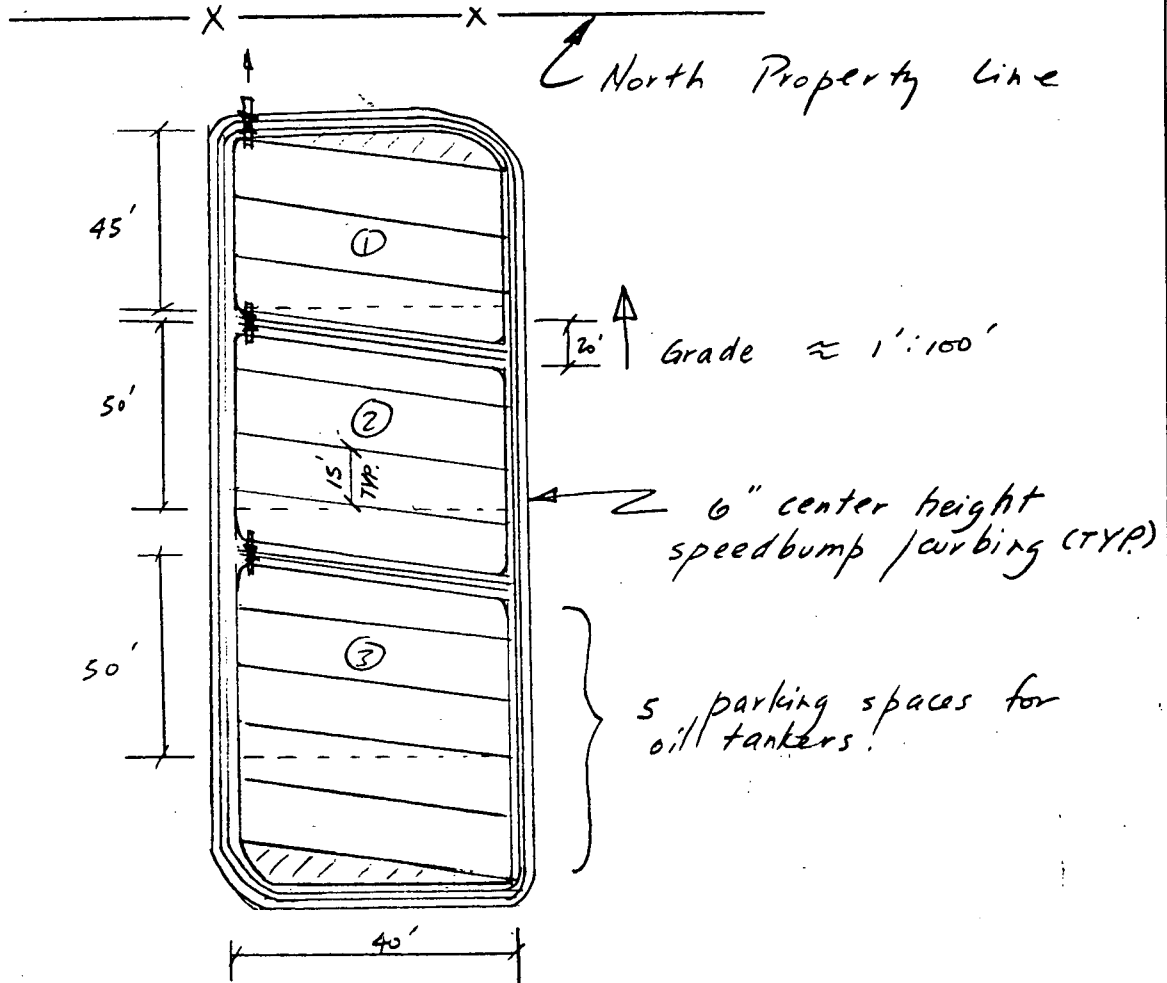 X X
North Property Line
45'
①
20'
Grade ≈ 1':100'
50'
②
15'
TYP.
6" center height
speedbump/curbing (TYP.)
50'
③
5 parking spaces for
oil tankers.
40'